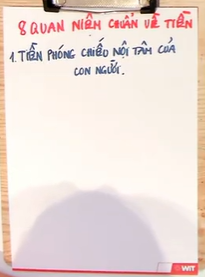 8 QUAN NIỆM CHUẨN VỀ TIỀN
1. TIỀN PHÓNG CHIẾU NỘI TÂM CỦA
CON NGƯỜI.
WIT